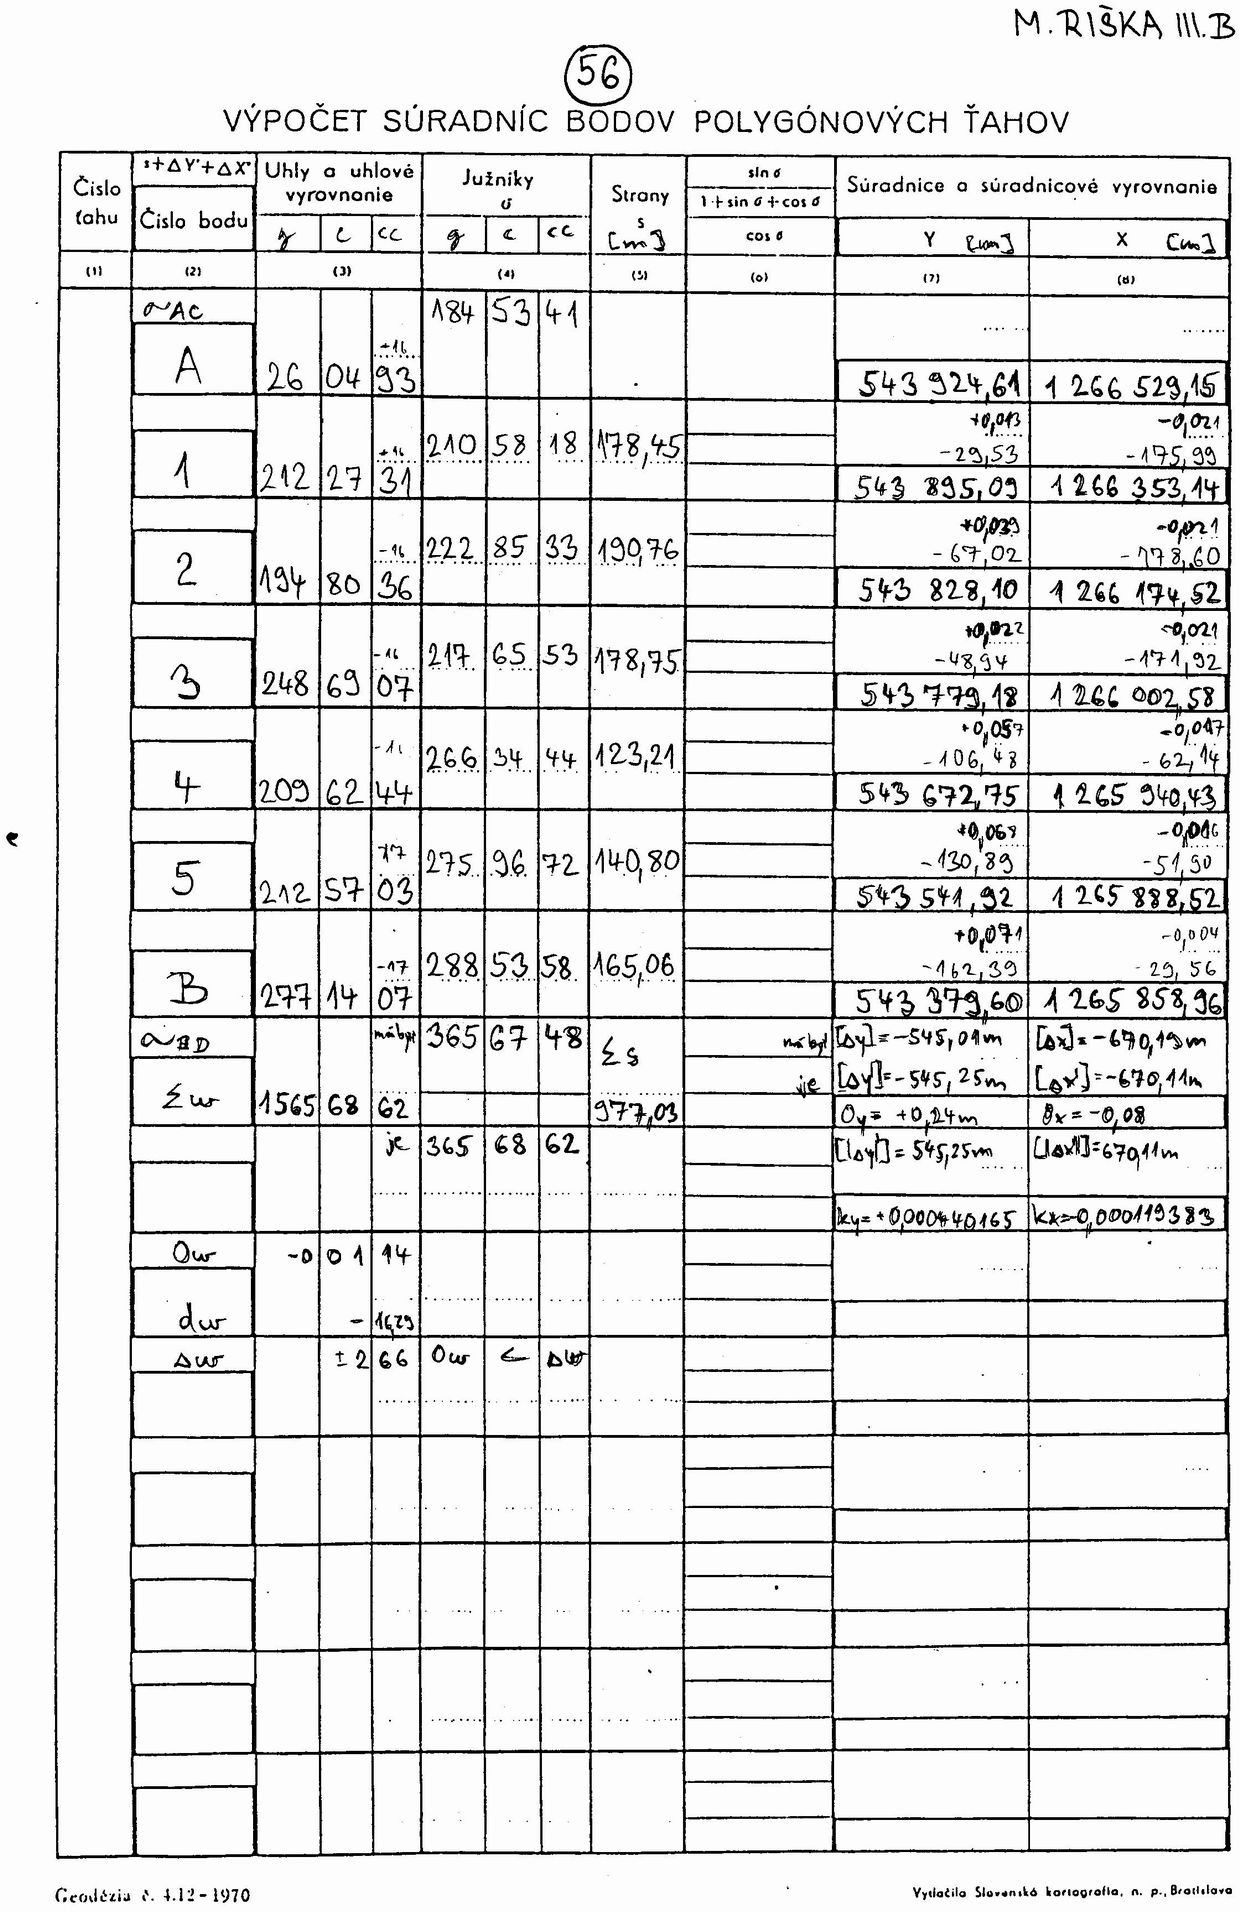 M. RIŠKA III.B
56
VÝPOČET SÚRADNÍC BODOV POLYGÓNOVÝCH ŤAHOV
Číslo ťahu
s+ΔY'+ΔX'
Číslo bodu
Uhly a uhlové vyrovnanie
g c cc
Južníky σ
g c cc
Strany s [m]
sin σ
1+sin σ+cos σ
cos σ
Súradnice a súradnicové vyrovnanie
Y [m] X [m]
(1) (2) (3) (4) (5) (6) (7) (8)
σAC 184 53 41
A 26 04 93 543 924,61 1 266 529,15
+0,013 -0,021
210 58 18 178,45 -29,53 -175,99
1 212 27 31 543 895,09 1 266 353,14
+0,039 -0,021
-16 222 85 33 190,76 -67,02 -178,60
2 194 80 36 543 828,10 1 266 174,52
+0,022 -0,021
-16 217 65 53 178,75 -48,94 -171,92
3 248 69 07 543 779,18 1 266 002,58
+0,057 -0,017
266 34 44 123,21 -106,48 -62,14
4 209 62 44 543 672,75 1 265 940,43
+0,068 -0,016
275 96 72 140,80 -130,89 -51,90
5 212 57 03 543 541,92 1 265 888,52
+0,071 -0,004
-17 288 53 58 165,06 -162,39 -29,56
B 277 14 07 543 379,60 1 265 858,96
σBD má byť 365 67 48 Σs má byť [Δy]=-545,01m [Δx]=-670,19m
je [Δy']=-545,25m [Δx']=-670,11m
Σω 1565 68 62 977,03 Oy= +0,24m Ox=-0,08
je 365 68 62 [|Δy'|]= 545,25m [|Δx'|]=670,11m
ky=+0,000440165 kx=-0,000119383
Oω -0 01 14
dω - 16,29
Δω ±2 66 Oω < Δω
Geodézia č. 4.12-1970
Vytlačila Slovenská kartografia, n. p., Bratislava